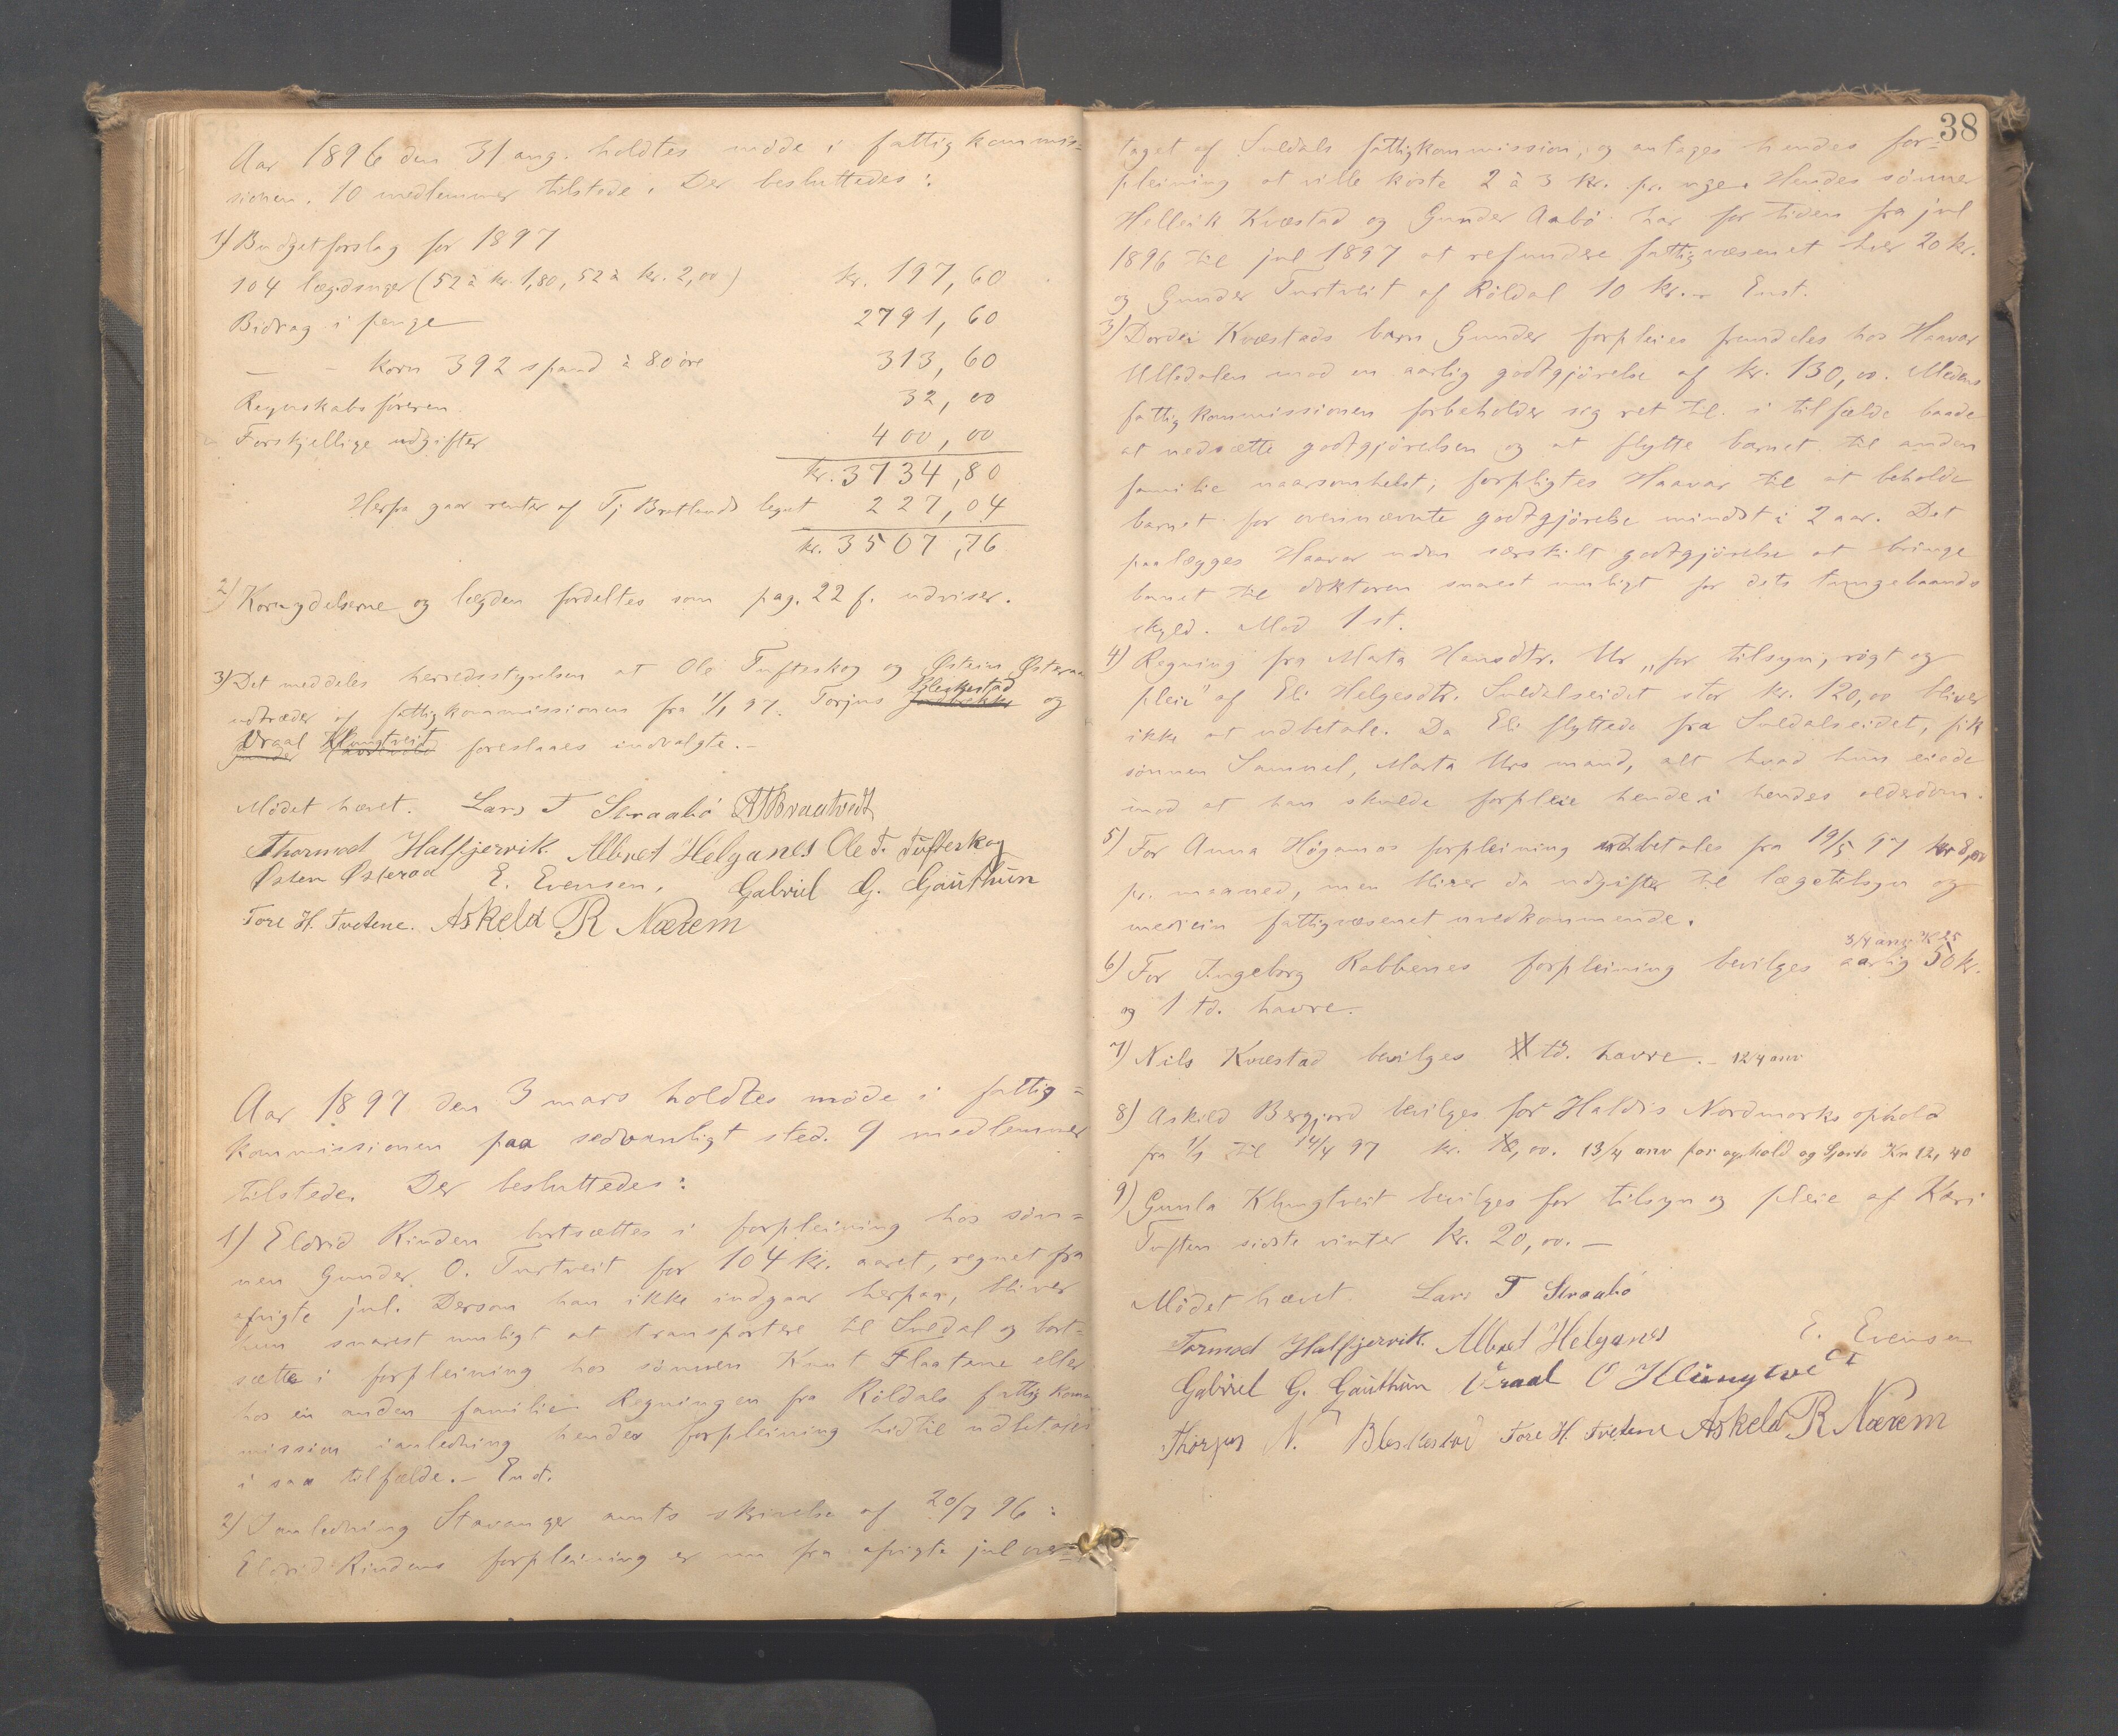 Aar 1896 den 31 aug. holdtes møde i fattigkommis=
sionen. 10 medlemmer tilstede. Der besluttedes:
1) Budgetforslag for 1897
104 lægdsuger (52 à kr. 1,80, 52 à kr. 2,00) kr. 197,60
Bidrag i penge 2791,60
— - korn 392 spand à 80 øre 313,60
Regnskabsføreren 32,00
Forskjellige udgifter 400,00
kr. 3734,80
Herfra gaar renter af Tj. Bratlands legat 227,04
kr. 3507,76
2) Kornydelserne og lægden fordeltes som pag. 22 f. udviser.
3) Det meddeles herredsstyrelsen at Ole Tufteskog og Østein Østeraa
udtræder af fattigkommissionen fra 1/1 97. Torjus Bleskestad og
Vraal Klungtveit foreslaaes indvalgte. —
Mødet hævet. Lars T Straabø
Thormod Halfjervik. Albret Helganes Ole T. Tufteskog
Østen Østeraa E. Evensen, Gabriel G. Gauthun
Tore H. Tvetene. Askeld R Nærem
Aar 1897 den 3 mars holdtes møde i fattig=
kommissionen paa sedvanligt sted. 9 medlemmer
tilstede. Der besluttedes:
1) Eldrid Rinden bortsættes i forpleining hos søn=
nen Gunder O. Turtveit for 104 kr. aaret, regnet fra
afvigte jul. Dersom han ikke indgaar herpaa, bliver
hun snarest muligt at transportere til Suldal og bort=
sætte i forpleining hos sønnen Knut Flaatene eller
hos en anden familie. Regningen fra Røldals fattigkom
mission i anledning hendes forpleining hidtil udbetales
i saa tilfælde. — Enst.
2) I anledning Stavanger amts skrivelse af 20/7 96:
Eldrid Rindens forpleining er nu fra afvigte jul over=
38
taget af Suldals fattigkommission, og antages hendes for=
pleining at ville koste 2 à 3 kr. pr. uge. Hendes sønner
Helleik Kvæstad og Gunder Aabø har for tiden fra jul
1896 til jul 1897 at refundere fattigvæsenet hver 20 kr.
og Gunder Turtveit af Røldal 10 kr. — Enst.
3) Dordei Kvæstads barn Gunder forpleies fremdeles hos Haavar
Ullsdalen mod en aarlig godtgjørelse af kr. 130,00. Medens
fattigkommissionen forbeholder sig ret til i tilfælde baade
at nedsætte godtgjørelsen og at flytte barnet til anden
familie naarsomhelst, forpligtes Haavar til at beholde
barnet for ovennævnte godtgjørelse mindst i 2 aar. Det
paalægges Haavar uden særskilt godtgjørelse at bringe
barnet til doktoren snarest muligt for dets tungebaands
skyld. Mod 1 st.
4) Regning fra Marta Hansdtr. Ur „for tilsyn, røgt og
pleie" af Eli Helgesdtr. Suldalseidet stor kr. 120,00 bliver
ikke at udbetale. Da Eli flyttede fra Suldalseidet, fik
sønnen Samuel, Marta Urs mand, alt hvad hun eiede
imod at han skulde forpleie hende i hendes alderdom.
5) For Anna Høgamos forpleining udbetales fra 19/5 97 kr 8,00
pr. maaned, men bliver da udgifter til lægetilsyn og
medicin fattigvæsenet uvedkommende.
3/4 anv K 25
6) For Ingeborg Rabbenes forpleining bevilges aarlig 50 kr.
og 1 td. havre.
7) Nils Kvæstad bevilges td. havre. — 12/4 anv
8) Askild Bergjord bevilges for Haldis Nordmarks ophold
fra 1/1 til 14/4 97 kr. ,00. 13/4 anv for ophold og Kr 12,40
9) Gunla Klungtveit bevilges for tilsyn og pleie af Kari
Tuften sidste vinter kr. 20,00. —
Mødet hævet. Lars T Straabø
Tormod Halfjervik. Albret Helganes E. Evensen
Gabriel G. Gauthun Vraal O Klungtveit
Thorjus N. Bleskestad Tore H. Tvetene Askeld R Nærem